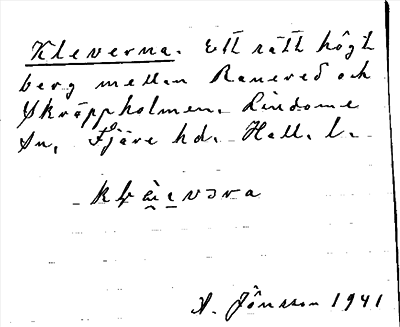 Kleverna. Ett rätt högt
berg mellan Ranered och
Skräppholmen. Lindome
Sn, Fjäre hd. Hall. l.
A. Jönsson 1941